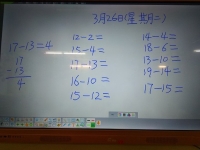 3月26日(星期二)
17-13=4
17
-13
4
12-2=
15-4=
17-13=
16-10=
15-12=
14-4=
18-6=
13-10=
19-14=
17-15=